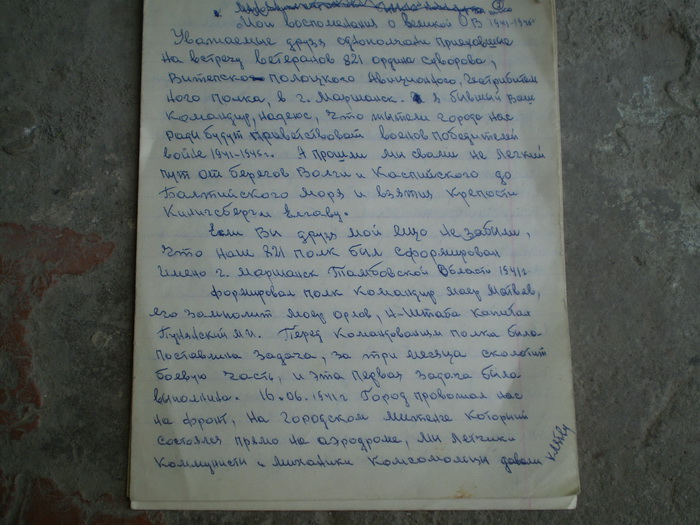 Мои воспоминания о великой ОВ 1941-1945г
Уважаемые друзя однополчани приехавшие
на встречу ветеранов 821 ордина суворова,
Витепско полоцкого Авиционного, Истрибител
ного полка, в г. Маршанск. я бывший Ваш
командир, надеюс, что жытели города нас
ради будут приветствоват воелов победителей
войне 1941-1945г. А прошли ми свами не легкий
пут от берегов Волги и Каспийского до
Балтийского моря и взятия крепости
Кинигсберг и елгаву.
если Вы друзя мой ещо не забыли,
что наш 821 полк был сформирован
имено г. Маршанск Тамбовской Области 1941г
формировал полк Командир маёр Матвев,
его замполит маёр орлов, Н-штаба капитан
М.И. Перед командованим полка била
поставлина задача, за три месяца сколотит
боевую часть, и эта первая задача была
выполнино. 16.06.1941г Город провожал нас
на фронт, на городском митенге которий
состоялся прямо на аэродроме, ми летчики
Коммунисти и миханики Комсомольци давали
клятву